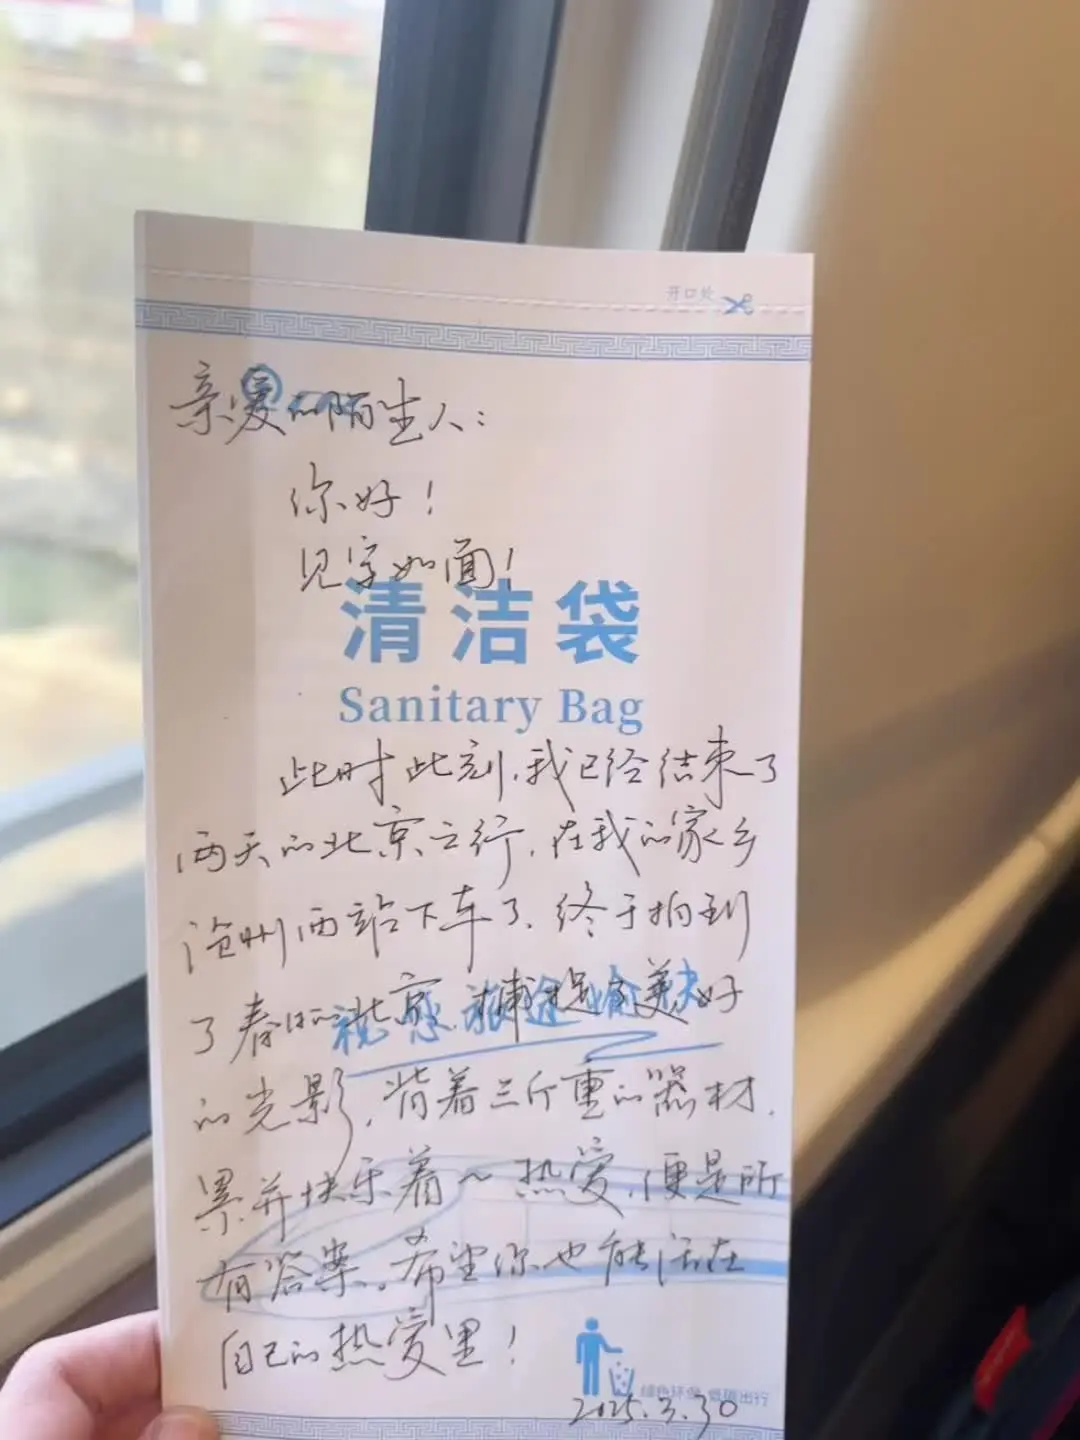 开口处
亲爱的陌生人：
你好！
见字如面！
清洁袋
Sanitary Bag
此时此刻，我已经结束了
两天的北京之行，在我的家乡
沧州西站下车了，终于拍到
了春日的北京，捕捉了美好
祝您旅途愉快
的光影，背着三斤重的器材，
累并快乐着～热爱，便是所
有答案。希望你也能活在
自己的热爱里！
绿色环保 低碳出行
2025.3.30